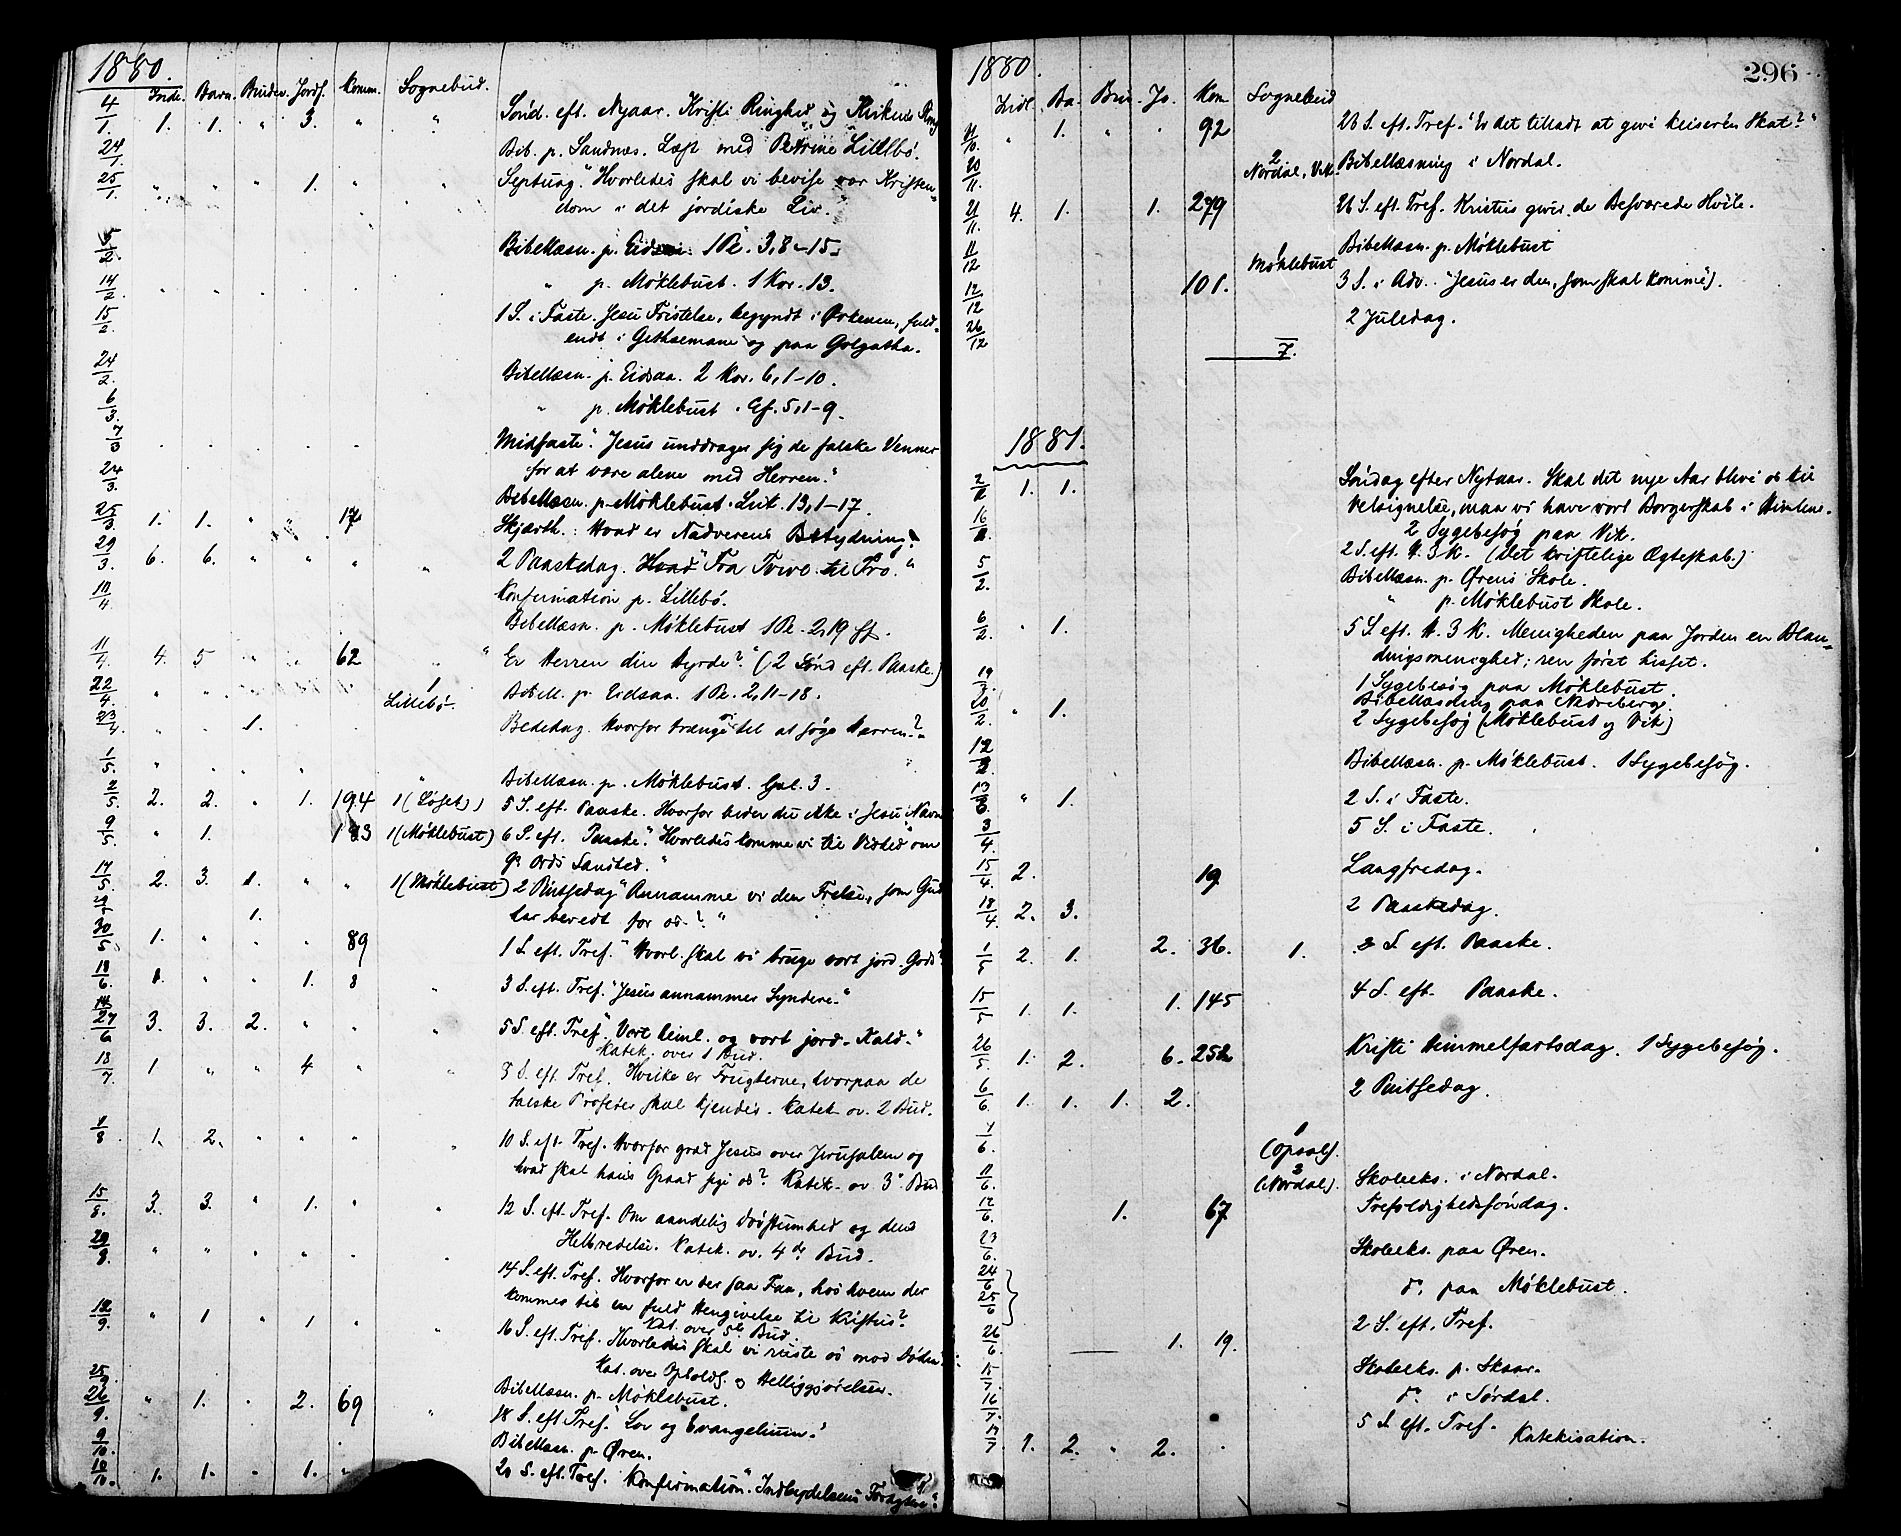 1880.
Indl. Barn. Brudev. Jordf. Komm. Sognebud.
4/1. 1. 1. " 3. " " Sønd. eft. Nyaar. Kristi Ringhed og Kirkens
24/1. Bib. p. Sandnes. Læst med Petrine Lillebø.
25/1. " " " 1. " " Septuag. "Hvorledes skal vi bevise vor Kristen
dom i det jordiske Liv."
5/2. Bibellæsn. p. Eidsaa. 1 Pe. 3,8-15.
14/2. " p. Møklebust. 1 Kor. 13.
15/2. 1 S. i Faste. Jesu Fristelse, begyndt i Ørkenen, fuld-
endt i Gethsemane og paa Golgatha.
24/2. Bibellæsn. p. Eidsaa. 2 Kor. 6,1-10.
6/3. " p. Møklebust. Ef. 5,1-9.
7/3 Midfaste. "Jesus unddrager sig de falske Venner
for at være alene med Herren."
24/3. Bibellæsn. p. Møklebust. Luk. 13,1-17.
25/3. 1. 1. " " 17 Skjærth.: Hvad er Nadverens Betydning?
29/3. 6. 6. " " " " 2 Paaskedag. Hvad "Fra Tvivl til Tro."
10/4. Konfirmation p. Lillebø.
Bibellæsn. p. Møklebust 1 Pe. 2,19 ff.
11/4. 4. 5 " " 62 " "Er Herren din Hyrde?" (2 Sønd eft. Paaske.)
22/4. " " 1 Lillebø. Bibell. p. Eidsaa. 1 Pe. 2,11-18.
23/4. " " 1. Bededag. Hvorfor trænge vi til at søge Herren?"
1/5. " " " " Bibellæsn. p. Møklebust. Gal. 3.
2/5. 2. 2. " 1. 194 1 (Løset) 5 S. eft. Paaske. Hvorfor beder du ikke i Jesu Navn
9/5. " 1. 183 1 (Møklebust) 6 S. eft. Paaske. "Hvorledes komme vi til Vished om
Gs Ords Sandhed."
17/5. 2. 3. 1. " " 1 (Møklebust) 2 Pintsedag "Annamme vi den Frelse, som Gud
har beredt for os?"
1.
30/5. 1. " " " 89 1 S. eft. Tref. "Hvorl. skal vi bruge vort jord. Gods?
1. " " 1. 8 " 3 S. eft. Tref. "Jesus annammer Syndere."
27/6 3. 3. 2. " " " 5 S. eft. Tref. "Vort himl. og vort jord. Kald."
Katek. over 1 Bud.
18/7. 1 " " 4 " " S. eft. Tref. Hvilke er Frugterne, hvorpaa de
falske Profeter skal kjendes. Katek. ov. 2 Bud.
1/8. 1. 2. " " " " 10 S. eft. Tref. Hvorfor græd Jesus over Jerusalem og
hvad skal hans Graad sige os? Katek. ov. 3. Bud
15/8. 3. 3. " 1. " " 12 S. eft. Tref. Om aandelig Døvstumhed og dens
Helbredelse. Katek. ov. 4de Bud.
29/8. " " " " " 14 S. eft. Tref. Hvorfor er der saa Faa, hos hvem der
kommes til en fuld Hengivelse til Kristus?
Kat. over 5te Bud.
12/9. " 1 " 1 " " 16 S. eft. Tref. Hvorledes skal vi ruste os mod Døden
Kat. over Ophold. og Helliggjørelsen.
25/9. Bibellæsn. p. Møklebust.
26/9. " 1. " 2. 69 " 18 S. eft. Tref. "Lov og Evangelium."
9/10. Bibellæsn. p. Øren.
10/10. 1. 1. " 1. " 20 S. eft. Tref. Konfirmation. "Indbydelsens Foragtere."
1880. 296
Indl. Ba. Bru. Jo. Kom Sognebud
" 1. " " 92 23 S. eft. Tref. "Er det tilladt at give Keiseren Skat?"
20/11. 2 Nordal, Vik. Bibellæsning i Nordal.
21/11. 4. 1. 1. 279 26 S. eft. Tref. Kristus giver de Besværede Hvile.
11/12 1 Møklebust Bibellæsn. p. Møklebust
12/12 101. 3 S. i Adv. "Jesus er den, som skal komme").
26/12 2 Juledag.
7.
1881.
1. 1. Søndag efter Nytaar. Skal det nye Aar blive os til
Velsignelse, maa vi have vort Borgerskab i Himlene.
2 Sygebesøg paa Vik.
2 S. eft. H. 3 K. (Det kristelige Ægteskab.)
5/2. Bibellæsn. p. Ørens Skole.
" p. Møklebust Skole.
6/2. " 1. 5 S. eft. H. 3 K. Menigheden paa Jorden en Blan-
dingsmenighed; ren først hisset.
1 Sygebesøg paa Møklebust.
Bibellæsning paa Nedreberg.
20/2. " 1. 2 Sygebesøg (Møklebust og Vik)
Bibellæsn. p. Møklebust. 1 Sygebesøg.
" 1. 2 S. i Faste.
3/4. 5 S. i Faste.
15/4. 2. 19 Langfredag.
18/4. 2. 3. 2 Paaskedag.
1/5 2. 1. 2. 36. 1. 2 S. eft. Paaske.
15/5 1. 1. 1. 145 4 S. eft. Paaske.
26/5. 1. 2. 6. 252 Kristi Himmelfartsdag. 1 Sygebesøg.
6/6. 1. 1. 1. 2. 2 Pintsedag.
1 (Opsal).
11/6. 3 (Nordal). Skoleeks. i Nordal.
12/6. 1. 67. Trefoldighedssøndag.
23/6. Skoleeks. paa Øren.
24/6 25/6 } do. paa Møklebust.
26/6. 1. 19. 2 S. eft. Tref.
15/7. Skoleeks. p. Skaar.
16/7. do. i Sørdal.
17/7 1. 2. " 2. 5 S. eft. Tref. Katekisation.